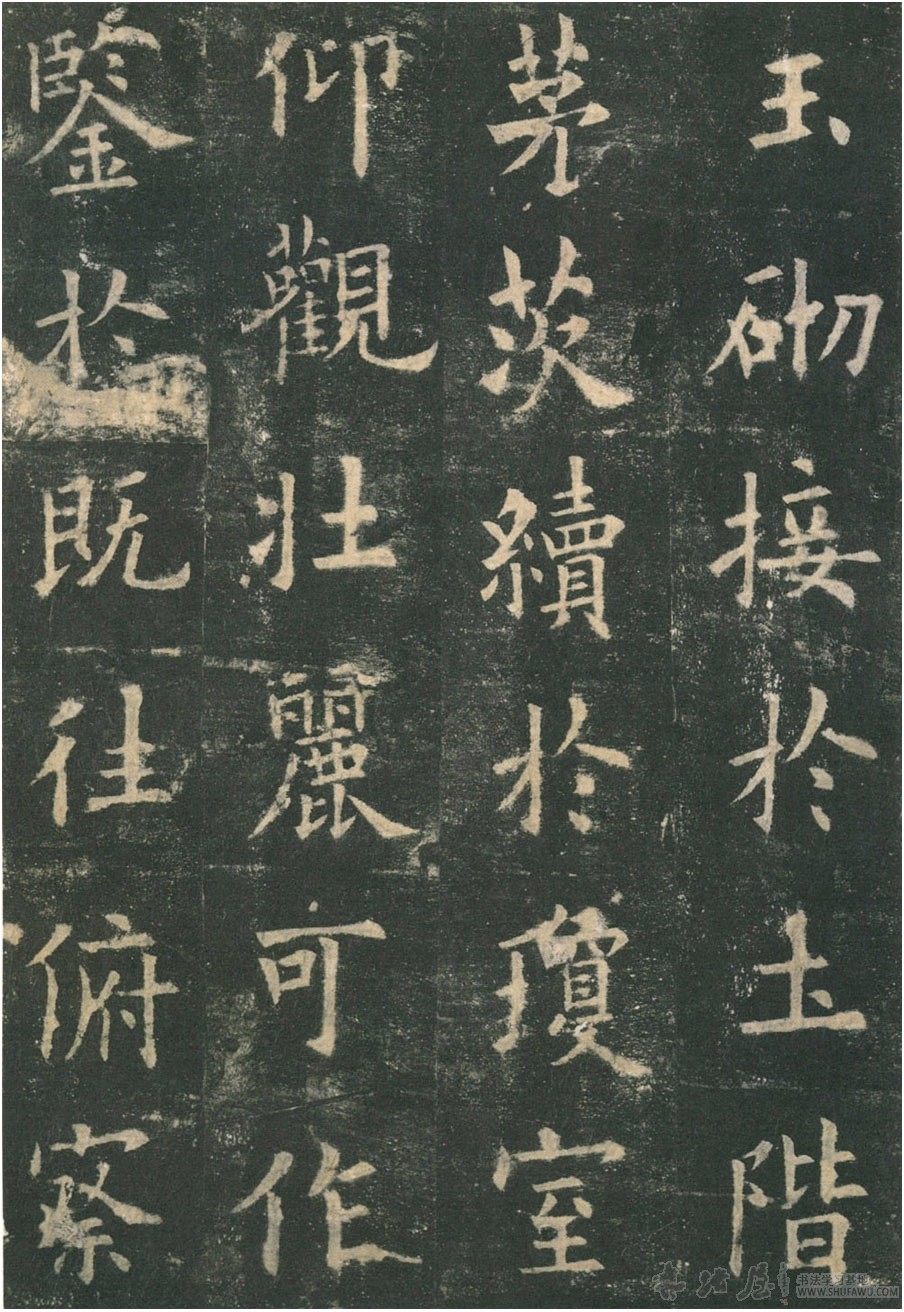 玉砌接於土階
茅茨續於瓊室
仰觀壯麗可作
鑒於既往俯察
书法学习基地
WWW.SHUFAWU.COM